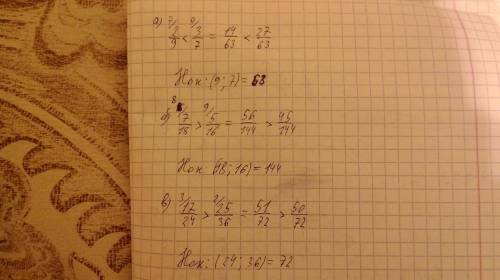 а) 7/ 2/9 < 9/ 3/7 = 14/63 < 27/63
Нок: (9; 7) = 63
б) 8/ 7/18 > 9/ 5/16 = 56/144 > 45/144
Нок: (18; 16) = 144
в) 3/ 17/24 > 2/ 25/36 = 51/72 > 50/72
Нок: (24; 36) = 72